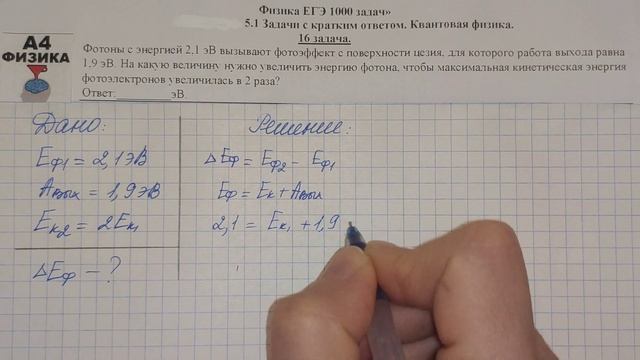 Физика ЕГЭ 1000 задач»
5.1 Задачи с кратким ответом. Квантовая физика.
16 задача.
А4
ФИЗИКА
Фотоны с энергией 2,1 эВ вызывают фотоэффект с поверхности цезия, для которого работа выхода равна
1,9 эВ. На какую величину нужно увеличить энергию фотона, чтобы максимальная кинетическая энергия
фотоэлектронов увеличилась в 2 раза?
Ответ:__________эВ.
Дано:
Eф1 = 2,1эВ
Aвых = 1,9эВ
Eк2 = 2Eк1
ΔEф – ?
Решение:
ΔEф = Eф2 – Eф1
Eф = Eк + Aвых
2,1 = Eк1 + 1,9